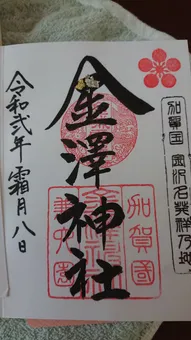 加賀国 金沢名発祥乃地
金澤神社
加賀國
兼六園
令和弐年 霜月八日